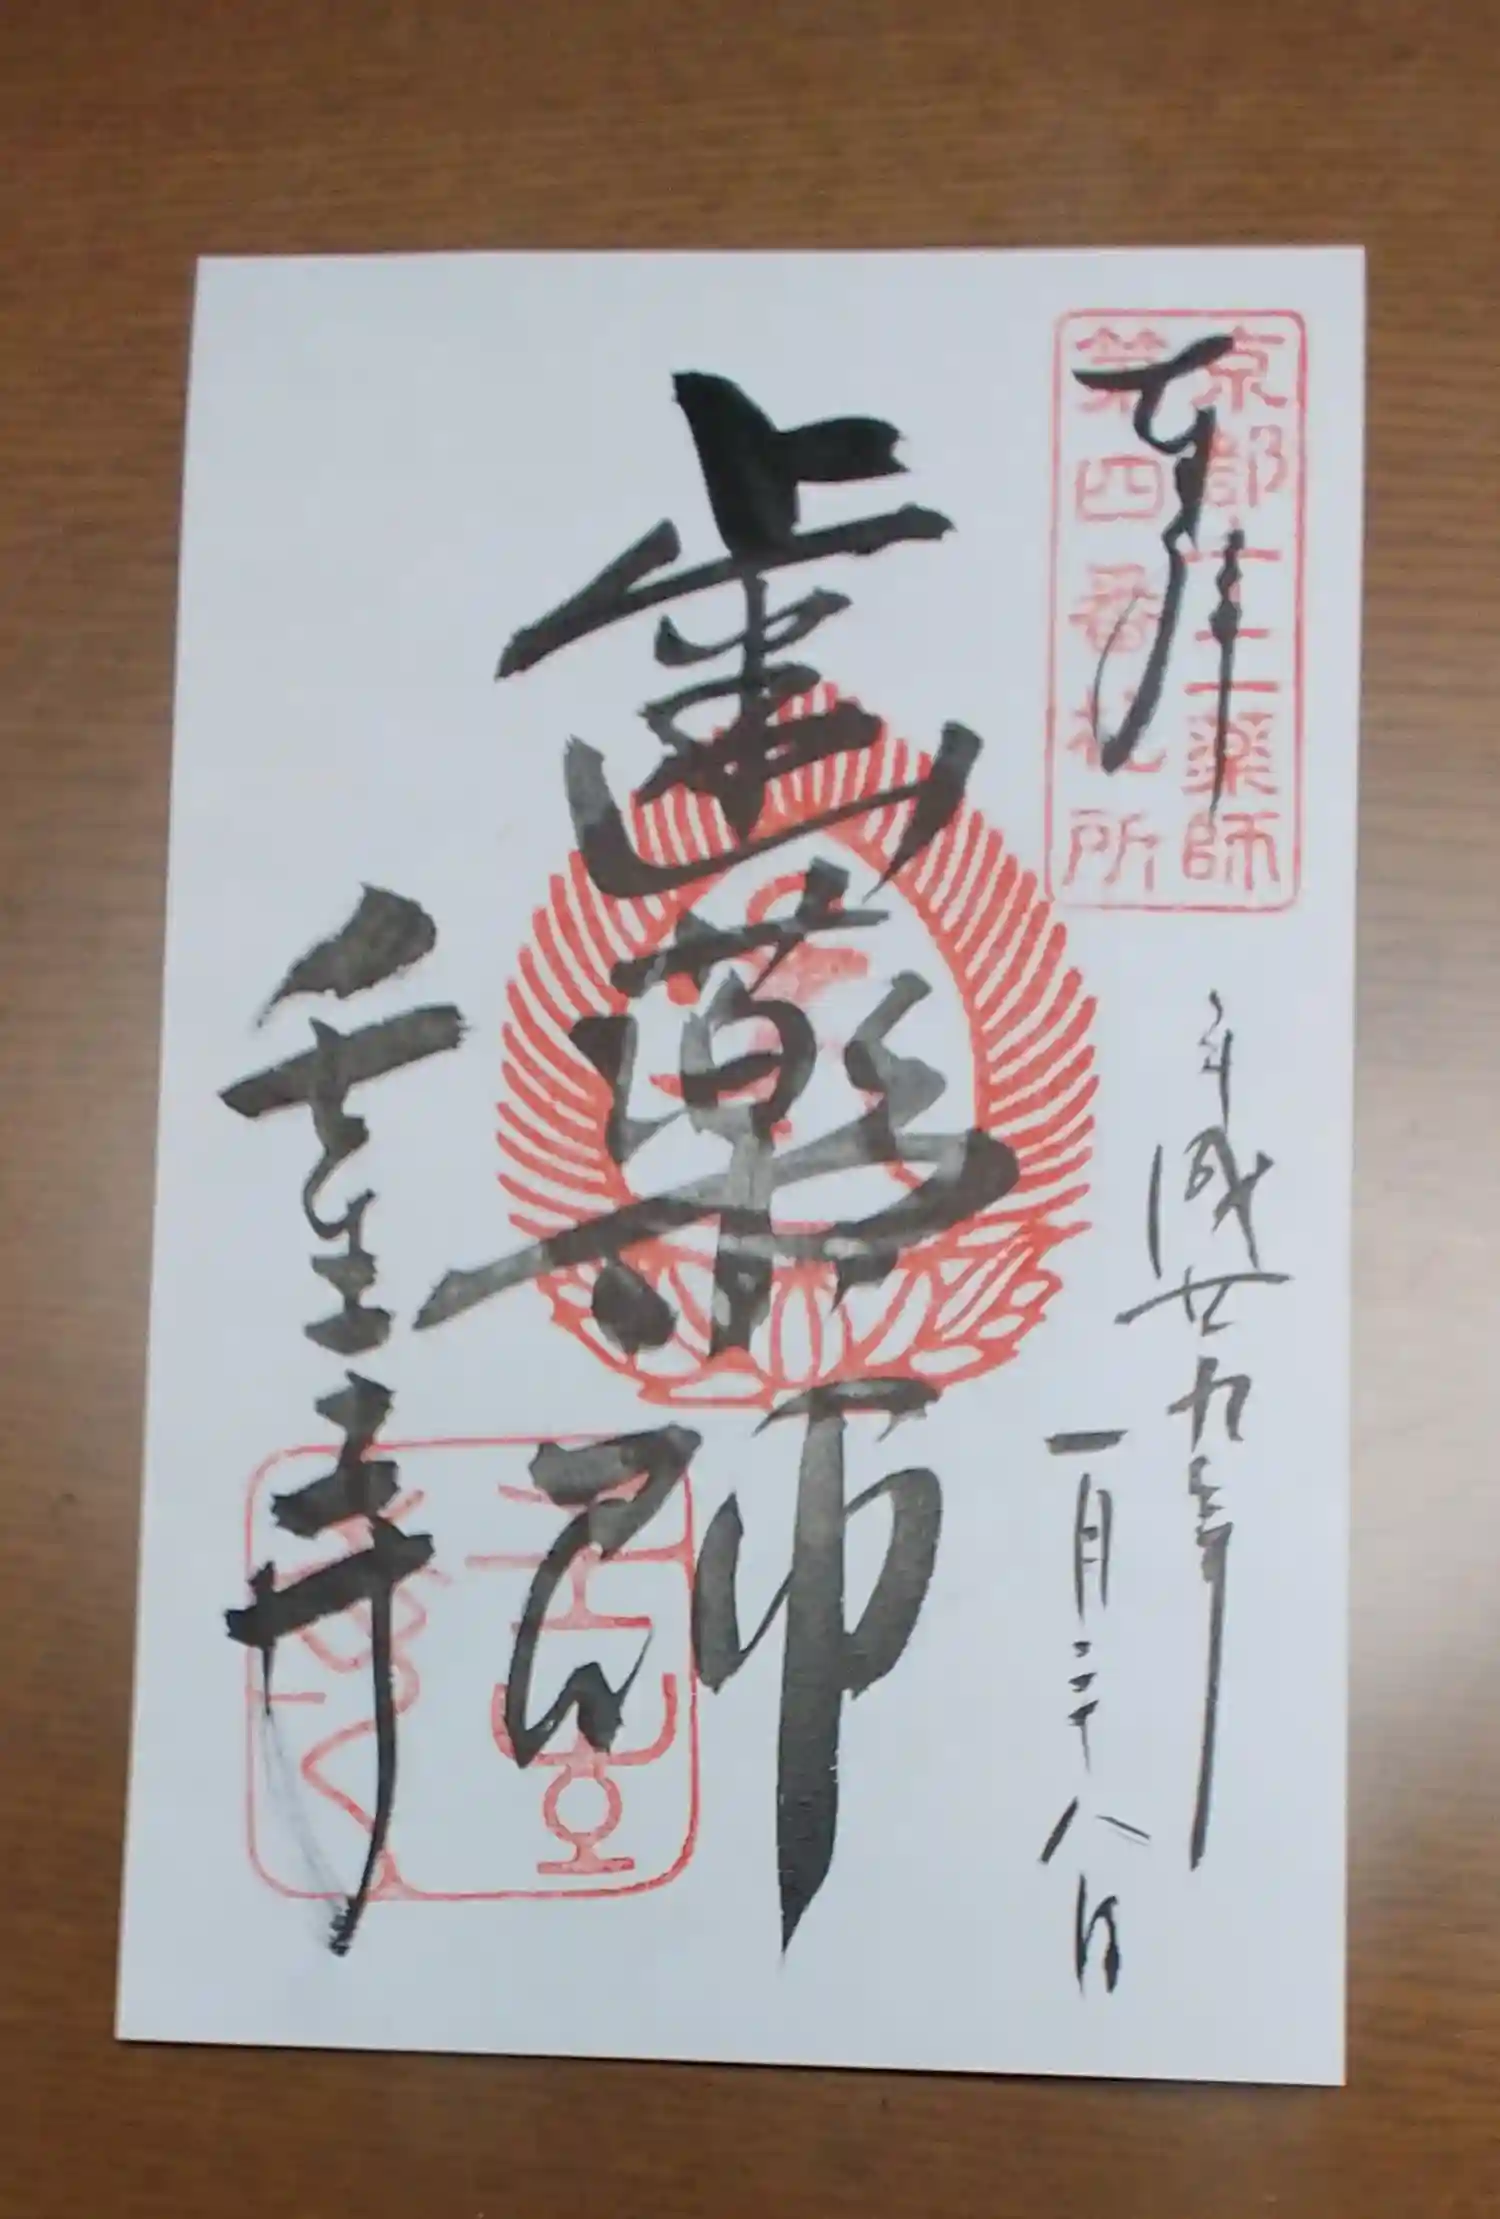 京都十二薬師
第四番札所
奉拝
平成廿九年
一月二十八日
歯薬師
壬生寺